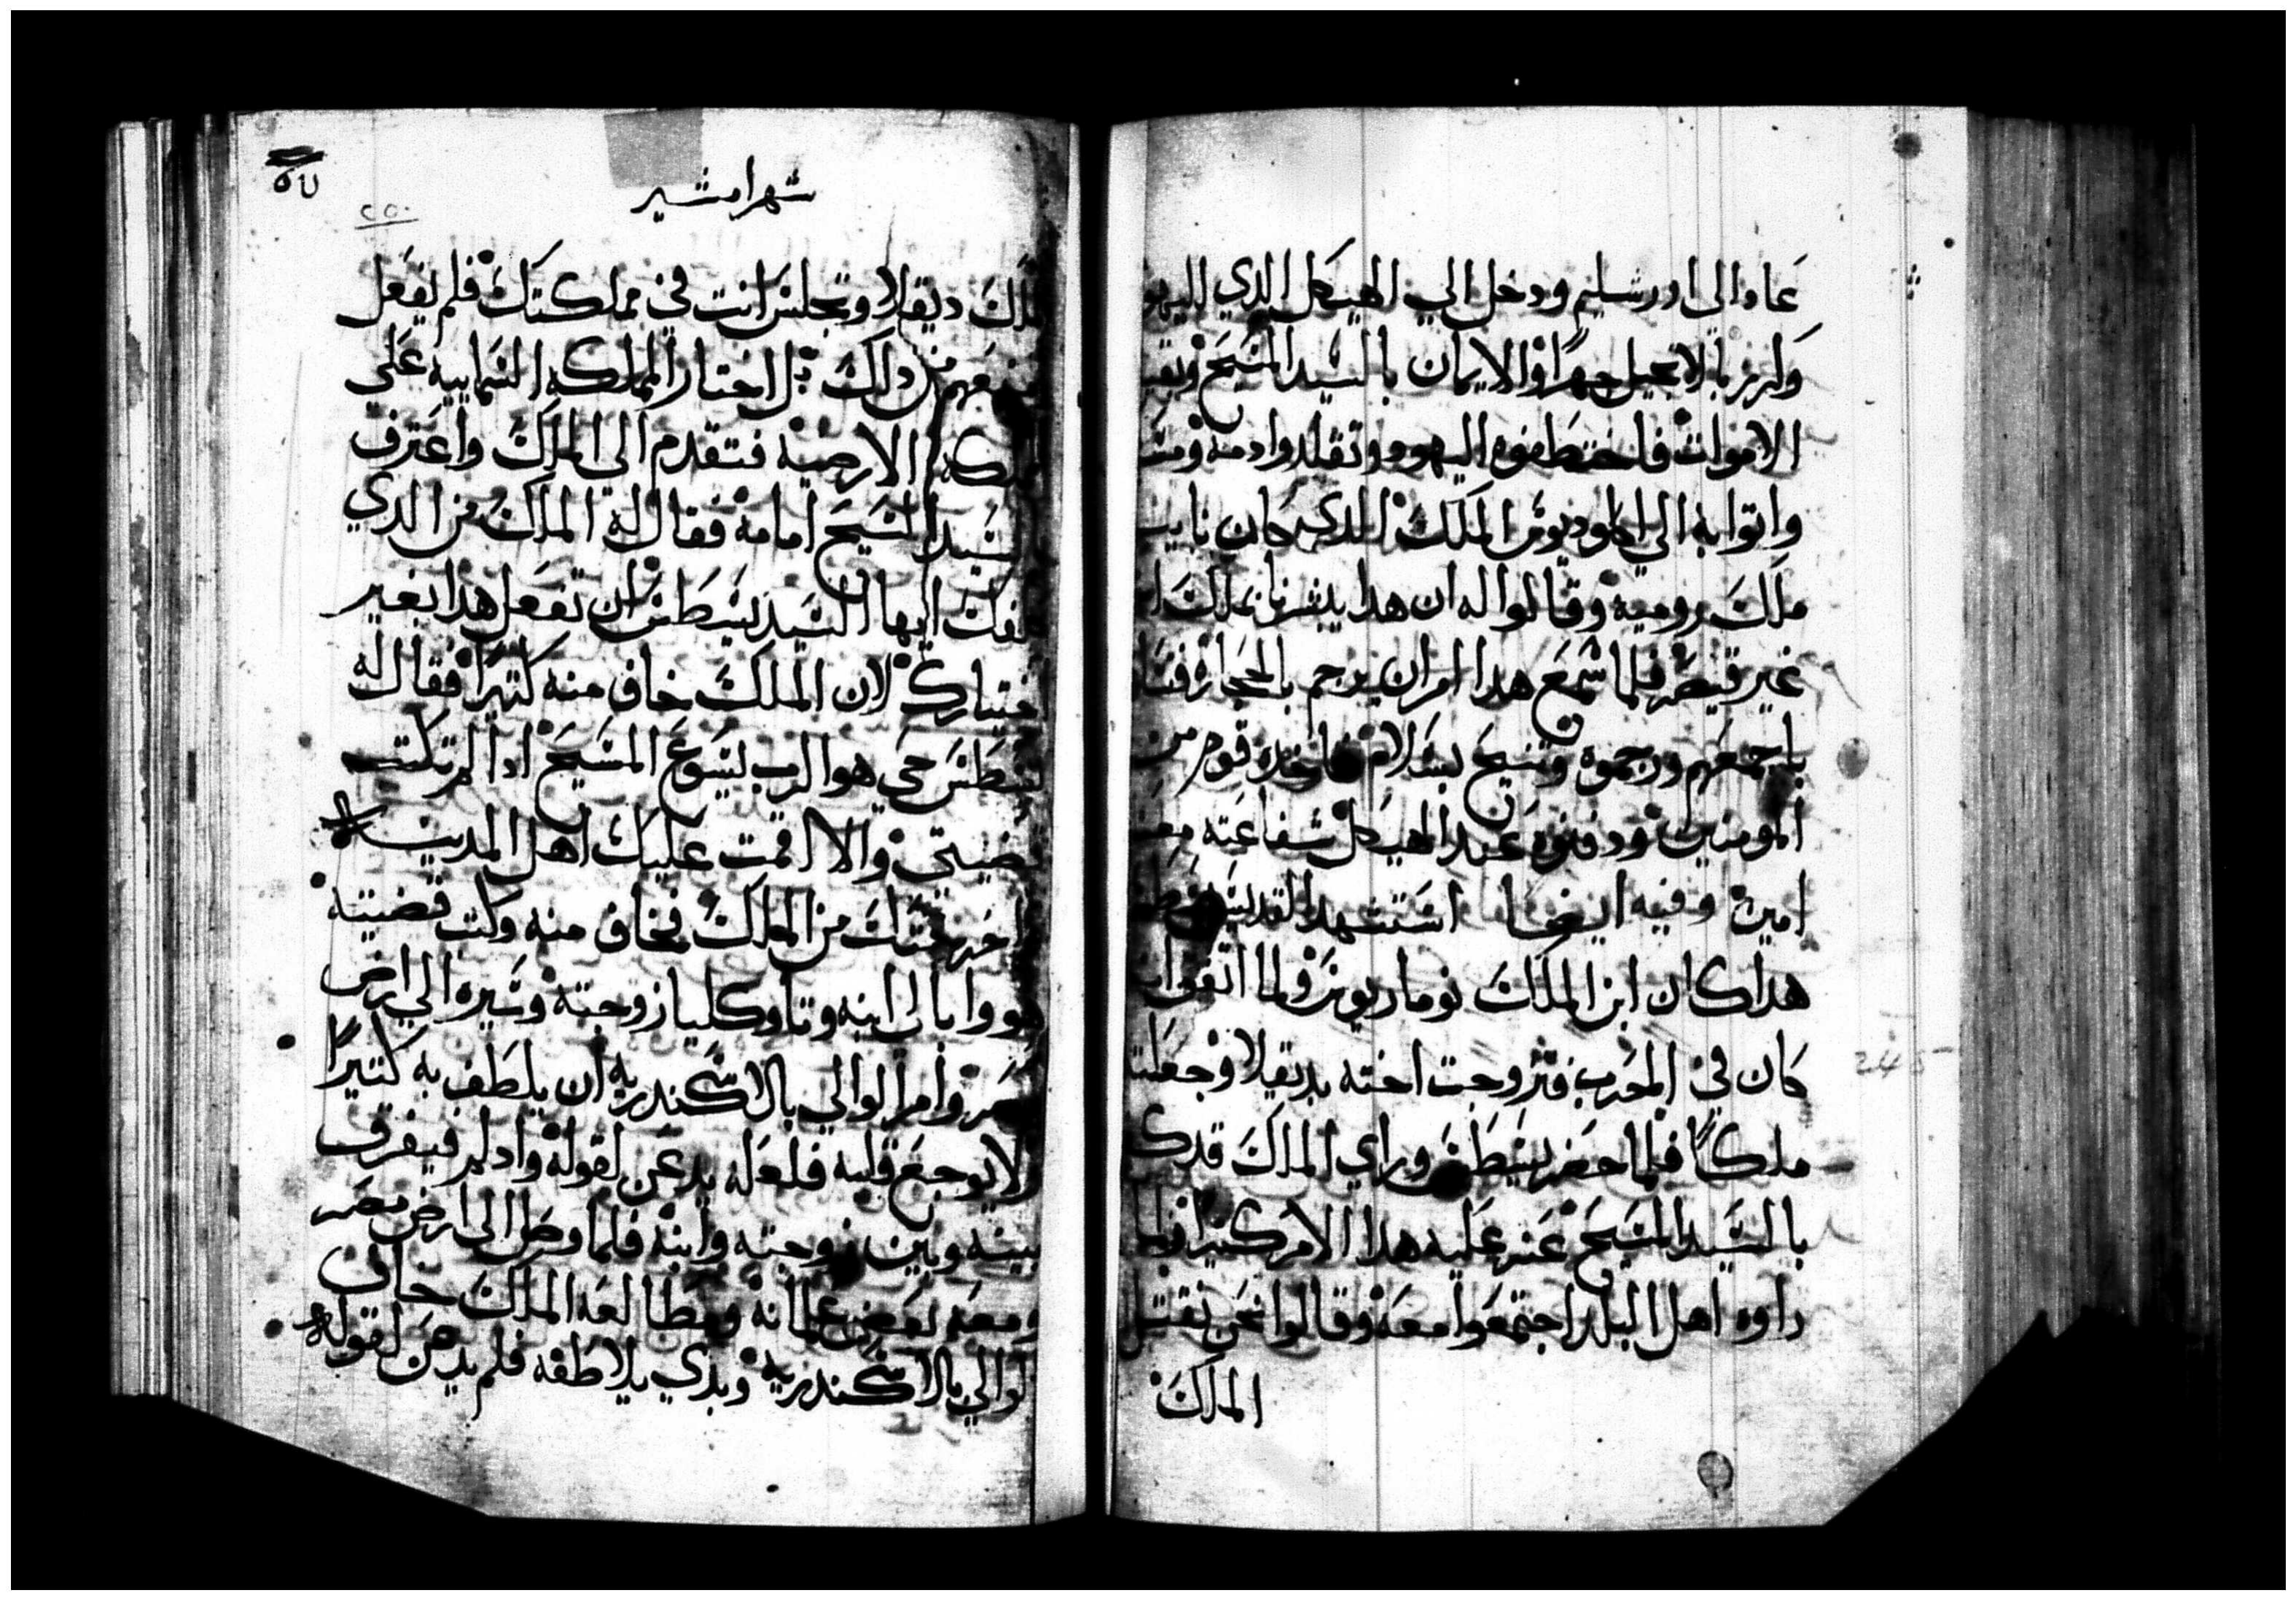 عاد الى اورشليم ودخل الي الهيكل الدي لليهو
وكرز بالانجيل جهرا والايمان بالسيد المسيح
الاموات فاختطفوه اليهود وتقلدوا دمه
واتوا به الي اكلوديوس الملك الدي كان نايب
ملك رومية وقالوا له ان هدا يبشرنا بملك
غير قيصر فلما سمع هدا امر ان يرجم بالحجارة
باجمعهم ورجموه وتنيح بسلام فاخده قوم من
المومنين ودفنوه عند الهيكل شفاعته
امين وفيه ايضا استشهد القديس
هدا كان ابن الملك نوماريوس ولما اتفق ان
كان في الحرب فتزوجت اخته بديقلا وجعلته
ملكا فلما حضر يسطس وراي الملك قد
بالسيد المسيح عز عليه هدا الامر كتيرا فلما
راوه اهل البلد اجتمعوا معه وقالوا نحن نقتل
الملك
٥٧
٢٥٠
شهر امشير
ديقلا وتجلس انت في مملكتك فلم يفعل
دلك بل اختار المملكه السماييه على
الارضية فتقدم الى الملك واعترف
السيد المسيح امامه فقال له الملك من الدي
ايها السيد يسطس ان تفعل هدا بغير
اختيارك لان الملك خاف منه كتيرا فقال له
يسطس حي هو الرب يسوع المسيح ادا لم تكتب
قضيتي والا اقمت عليك اهل المدينه
من الملك فخاف منه وكتب قضيته
هو وابالي ابنه وتاوكليا زوجته وسيره الي ارض
مصر وامر الوالي بالاسكندريه ان يلطف به كتيرا
ولا يوجع قلبه فلعله يدعن لقوله وادلم فيفرق
بينه وبين زوجته وابنه فلما وصل الى ارض مصر
ومعه بعض غلمانه ومطالعه الملك
لوالي بالاسكندريه وبدي يلاطفه فلم يدعن لقوله
245